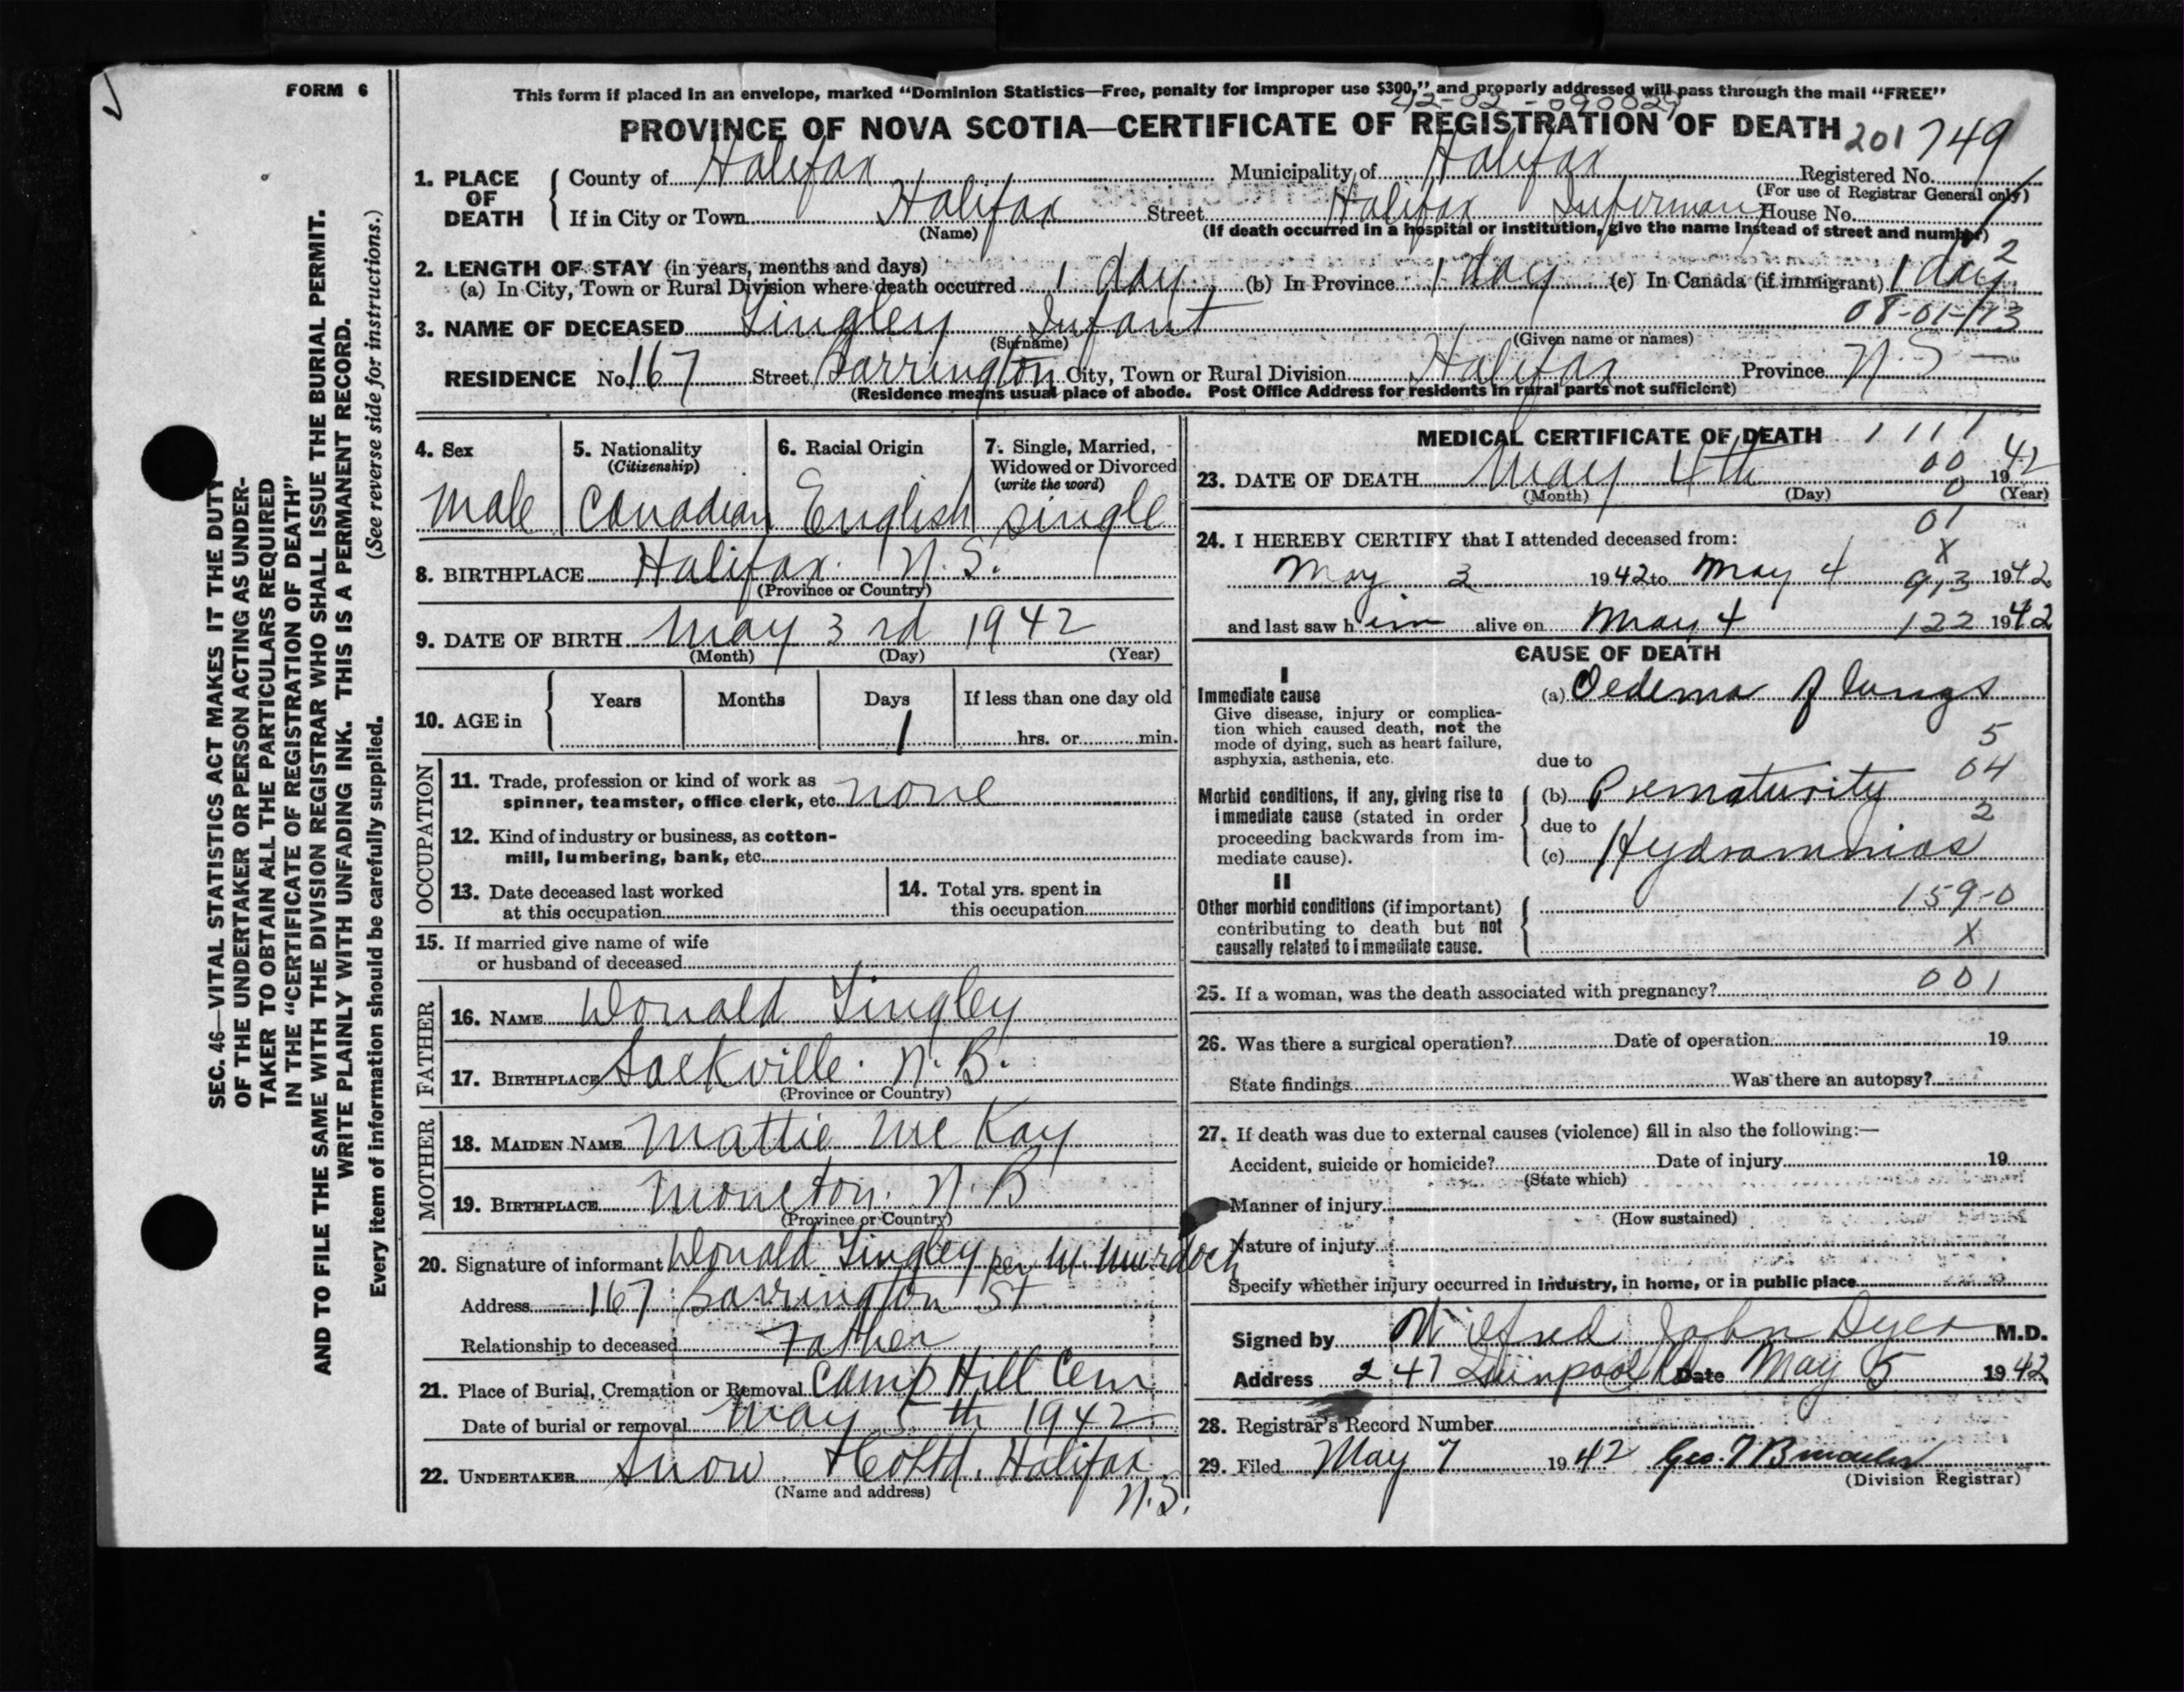 FORM 6
This form if placed in an envelope, marked "Dominion Statistics—Free, penalty for improper use $300," and properly addressed will pass through the mail "FREE"
PROVINCE OF NOVA SCOTIA—CERTIFICATE OF REGISTRATION OF DEATH 201 749
1. PLACE OF DEATH County of Halifax Municipality of Halifax Registered No.
(For use of Registrar General only)
If in City or Town Halifax Street Halifax Infirmary House No.
(Name) (If death occurred in a hospital or institution, give the name instead of street and number)
2. LENGTH OF STAY (in years, months and days) 2
(a) In City, Town or Rural Division where death occurred 1 day (b) In Province 1 day (c) In Canada (if immigrant) 1 day
3. NAME OF DECEASED Tingley Infant 08-01-113
(Surname) (Given name or names)
RESIDENCE No. 167 Street Barrington City, Town or Rural Division Halifax Province N S
(Residence means usual place of abode. Post Office Address for residents in rural parts not sufficient)
4. Sex 5. Nationality (Citizenship) 6. Racial Origin 7. Single, Married, Widowed or Divorced (write the word)
Male Canadian English Single
8. BIRTHPLACE Halifax. N. S.
(Province or Country)
9. DATE OF BIRTH May 3rd 1942
(Month) (Day) (Year)
10. AGE in Years Months Days If less than one day old
1 hrs. or min.
OCCUPATION
11. Trade, profession or kind of work as
spinner, teamster, office clerk, etc. none
12. Kind of industry or business, as cotton-
mill, lumbering, bank, etc.
13. Date deceased last worked
at this occupation
14. Total yrs. spent in
this occupation
15. If married give name of wife
or husband of deceased
FATHER
16. NAME Donald Tingley
17. BIRTHPLACE Sackville. N. B.
(Province or Country)
MOTHER
18. MAIDEN NAME Mattie Mc Kay
19. BIRTHPLACE Moncton. N. B
(Province or Country)
20. Signature of informant Donald Tingley per M. Murdoch
Address 167 Barrington St
Relationship to deceased Father
21. Place of Burial, Cremation or Removal Camp Hill Cem
Date of burial or removal May 5th 1942
22. UNDERTAKER Snow & Co Ltd. Halifax
(Name and address) N.S.
MEDICAL CERTIFICATE OF DEATH 1 1 1 1
23. DATE OF DEATH May 4th 00 19 42
(Month) (Day) 0 (Year)
01
24. I HEREBY CERTIFY that I attended deceased from: X
May 3 1942 to May 4 913 1942
and last saw h im alive on May 4 122 1942
CAUSE OF DEATH
I
Immediate cause (a) Oedema of lungs
Give disease, injury or complica-
tion which caused death, not the
mode of dying, such as heart failure,
asphyxia, asthenia, etc.
5
due to 04
Morbid conditions, if any, giving rise to (b) Prematurity
immediate cause (stated in order 2
proceeding backwards from im- due to
mediate cause). (c) Hydramnios
II
Other morbid conditions (if important) 159-0
contributing to death but not
causally related to immediate cause. X
25. If a woman, was the death associated with pregnancy? 001
26. Was there a surgical operation? Date of operation 19
State findings Was there an autopsy?
27. If death was due to external causes (violence) fill in also the following:—
Accident, suicide or homicide? Date of injury 19
(State which)
Manner of injury
(How sustained)
Nature of injury
Specify whether injury occurred in industry, in home, or in public place
Signed by Wilfred John Dyer M.D.
Address 247 Quinpool Rd Date May 5 1942
28. Registrar's Record Number
29. Filed May 7 1942 Geo.
(Division Registrar)
SEC. 46—VITAL STATISTICS ACT MAKES IT THE DUTY
OF THE UNDERTAKER OR PERSON ACTING AS UNDER-
TAKER TO OBTAIN ALL THE PARTICULARS REQUIRED
IN THE "CERTIFICATE OF REGISTRATION OF DEATH"
AND TO FILE THE SAME WITH THE DIVISION REGISTRAR WHO SHALL ISSUE THE BURIAL PERMIT.
WRITE PLAINLY WITH UNFADING INK. THIS IS A PERMANENT RECORD.
Every item of information should be carefully supplied. (See reverse side for instructions.)